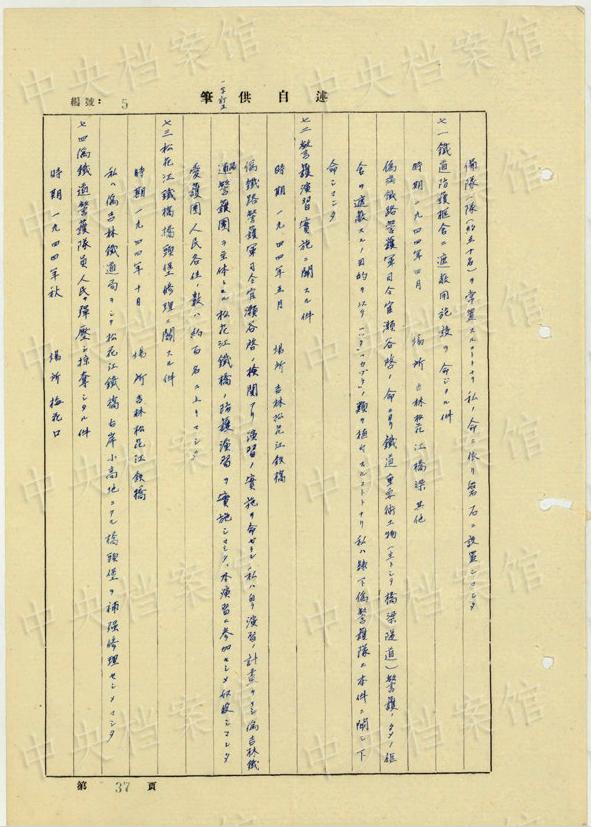 編號: 5
筆供自述
備隊一隊(約五十名)ヲ常置スルコトトナリ私ノ命ニ依リ磐石ニ設置シマシタ
七一鐵道防護柩舎ニ遮蔽用施設ヲ命シタル件
時期 一九四四年四月 場所 吉林松花江橋梁 其他
偽満鐵路警護軍司令官瀬谷啓ノ命ニヨリ鐵道重要術工物(主トシテ橋梁隧道)警護ノタメノ柩
舎ヲ遮蔽スルノ目的ヲ以テ「ツタ」「カボチャ」ノ類ヲ植付スルコトトナリ私ハ隷下偽警護隊ニ本件ニ関シ下
命シマシタ
七二警護演習實施ニ関スル件
時期 一九四四年五月 場所 吉林松花江鉄橋
偽鐵路警護軍司令官瀬谷啓ノ検閲アリ演習ノ實施ヲ命セラレ私ハ自ラ演習ノ計畫ヲナシ偽吉林鐵
道警護團ヲ主体トスル松花江鐵橋ノ防護演習ヲ實施シマシタ、本演習ニ参加セシメ奴役シマシタ
愛護團人民各位ノ数ハ約百名ニ上リマシタ
七三松花江鐵橋橋頭堡修理ニ関スル件
時期 一九四四年十月 場所 吉林松花江鉄橋
私ハ偽吉林鐵道局ヲシテ松花江鐵橋右岸小高地ニアル橋頭堡ヲ補强修理セシメマシタ
七四偽鐵道警護隊員人民ヲ彈壓シ掠奪シタル件
時期 一九四四年秋 場所 梅花口
第 37 頁
中央档案馆